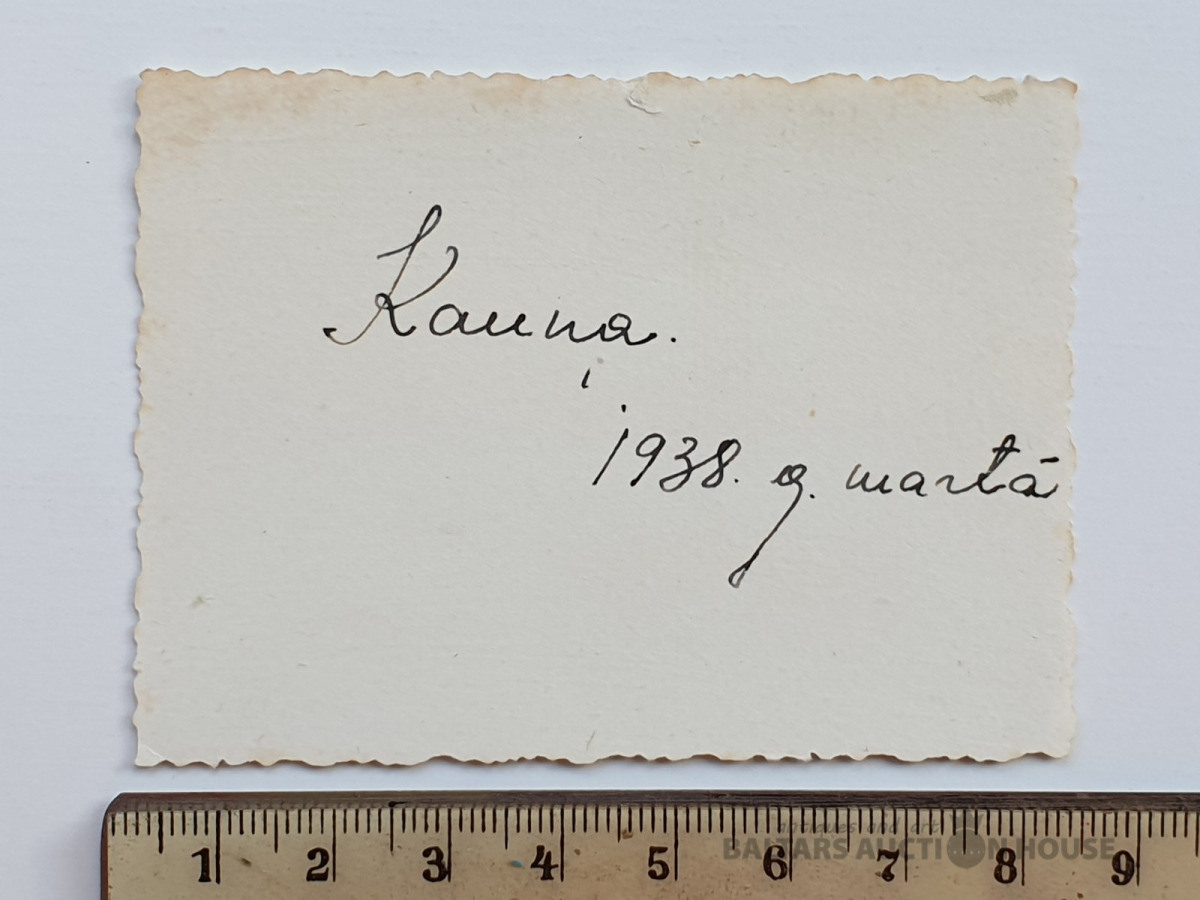 Kauņa.
1938. g. martā
1 2 3 4 5 6 7 8 9
antiques and art
BALTARS AUCTION HOUSE